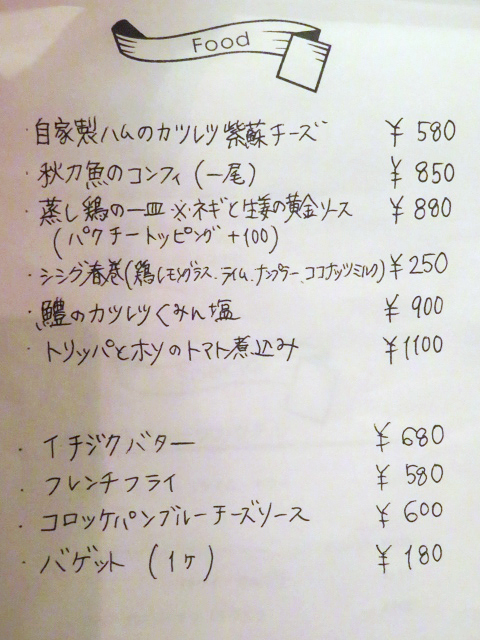 Food
・自家製ハムのカツレツ 紫蘇チーズ ¥580
・秋刀魚のコンフィ(一尾) ¥850
・蒸し鶏の一皿 ※・ネギと生姜の黄金ソース ¥880
(パクチートッピング +100)
・シシング春巻(鶏レモングラス、ライム、ナンプラー、ココナッツミルク) ¥250
・鱧のカツレツくみん塩 ¥900
・トリッパとホソのトマト煮込み ¥1100
・イチジクバター ¥680
・フレンチフライ ¥580
・コロッケパンブルーチーズソース ¥600
・バゲット (1ケ) ¥180